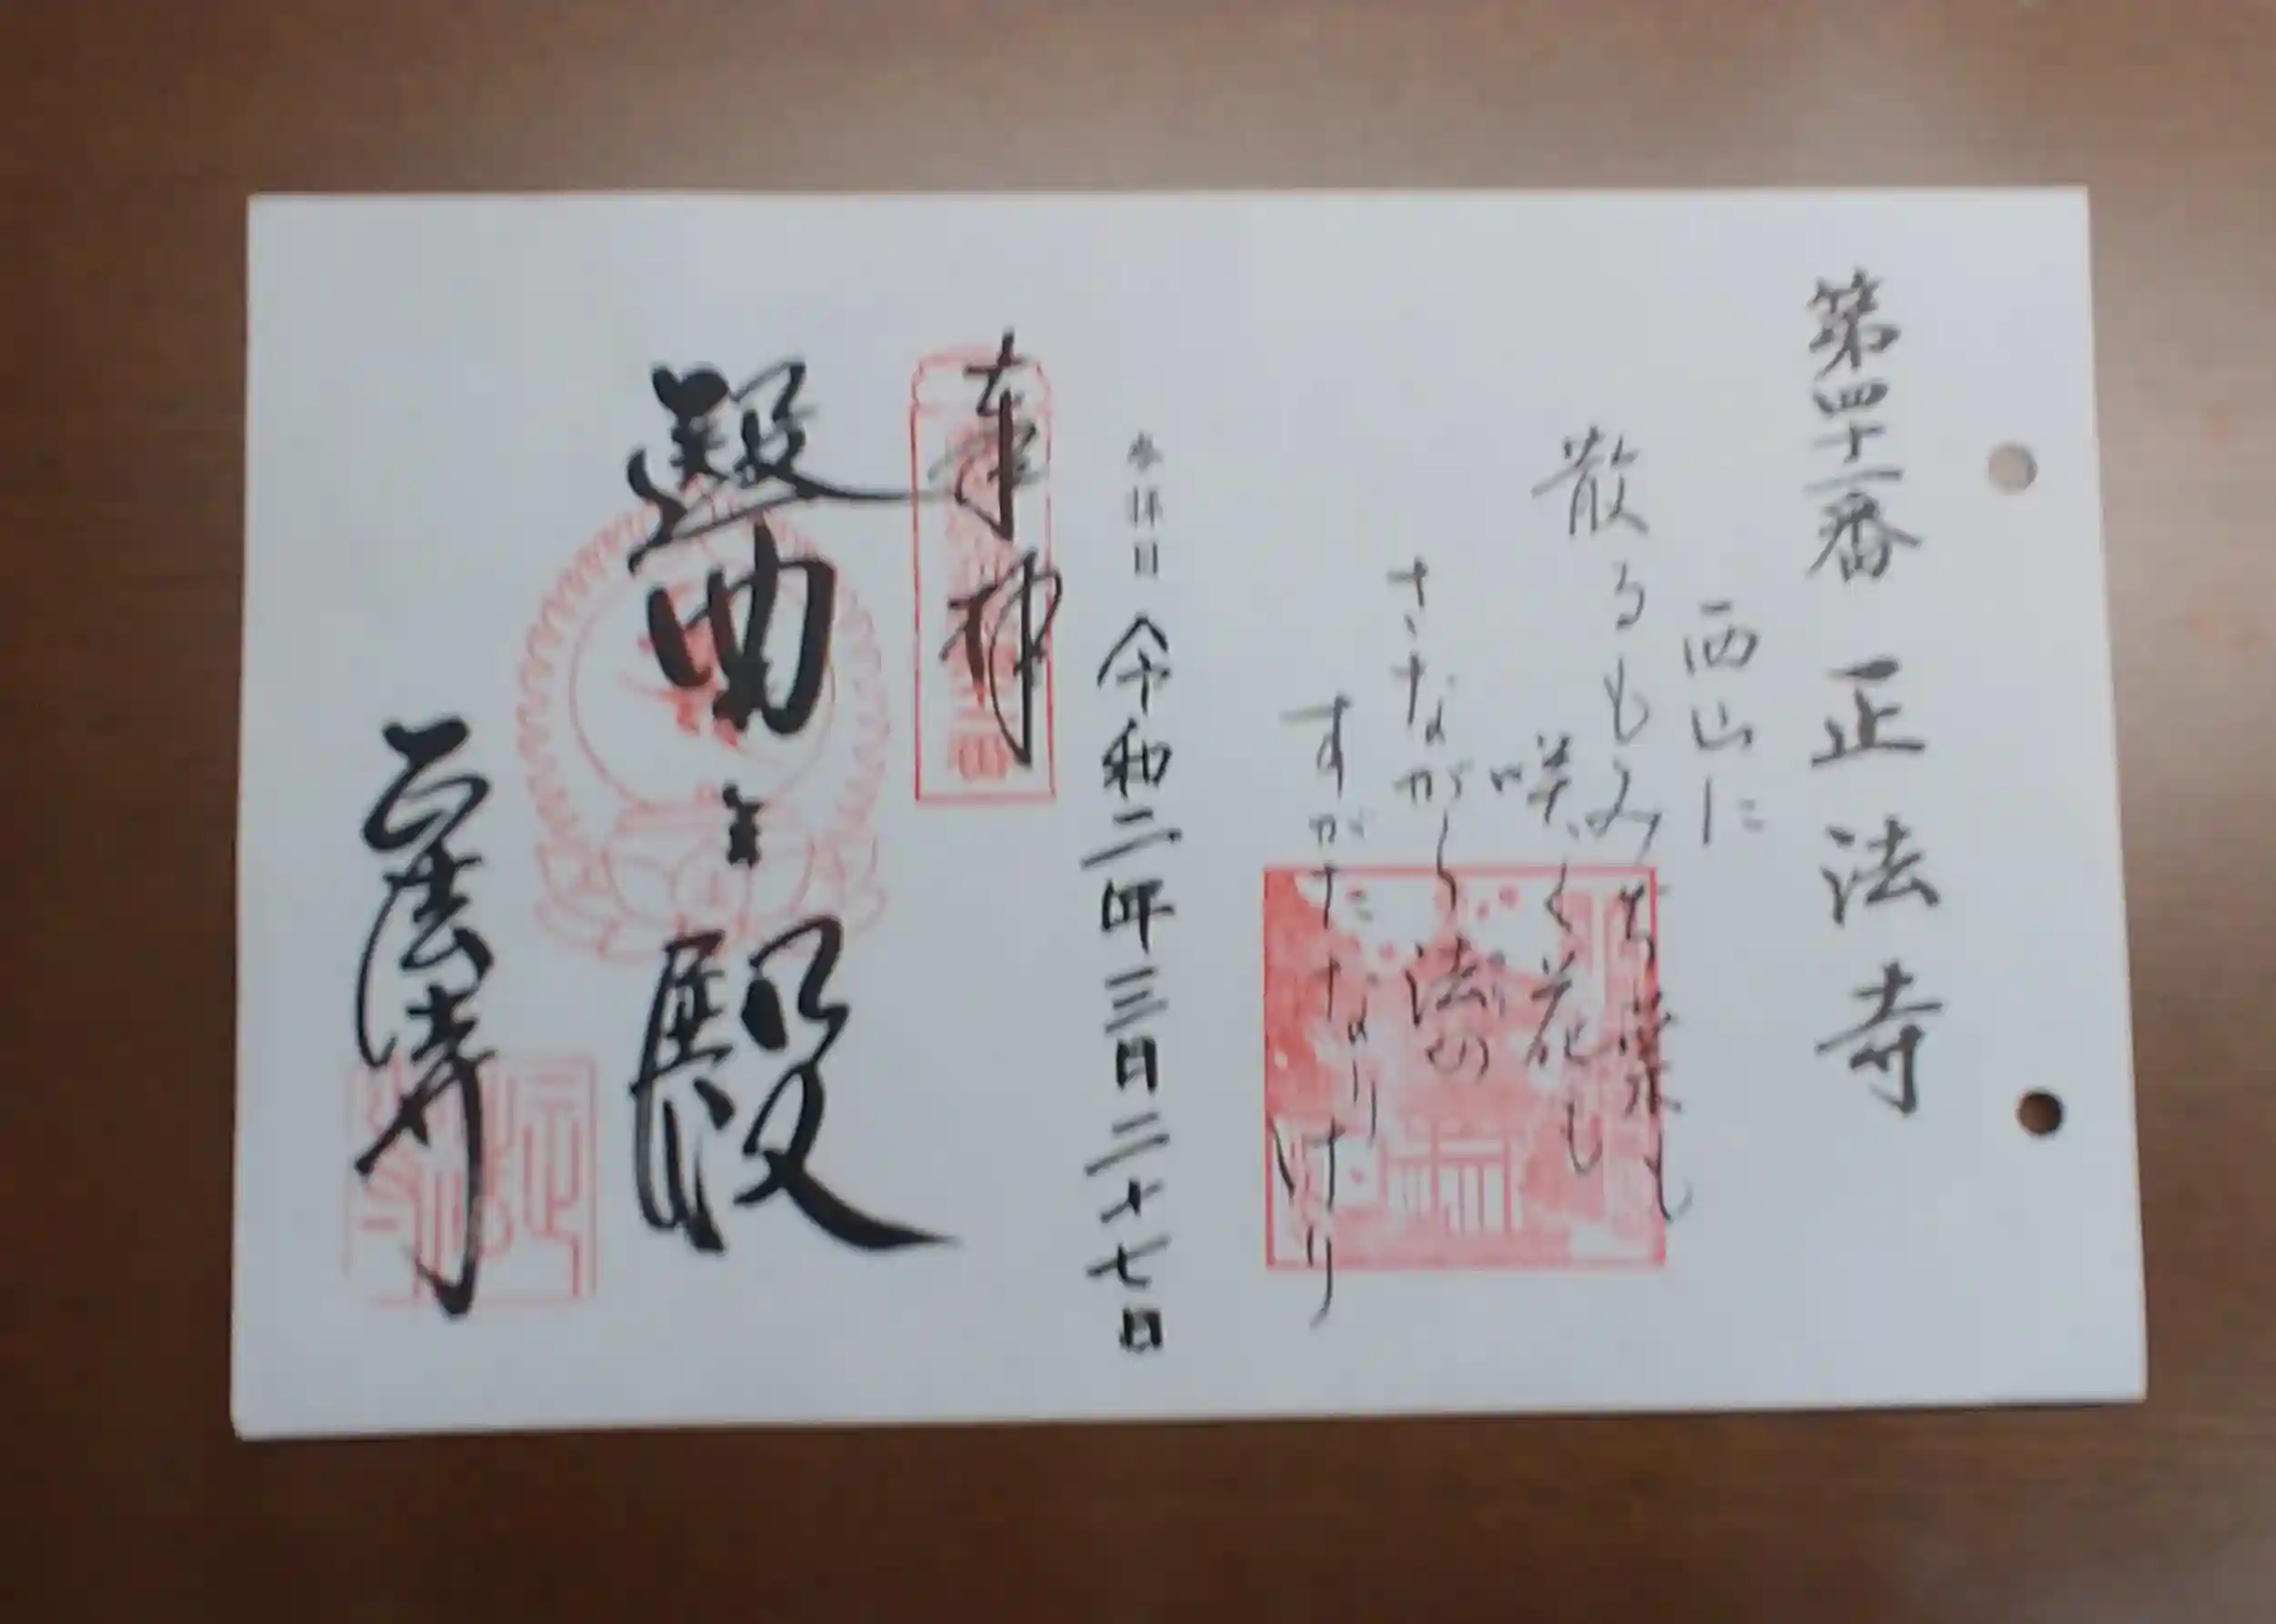 第四十一番 正法寺
西山に
散るもみぢ葉も
咲く花も
さながら法の
すがたなりけり
参拝日 令和二年三月二十七日
奉拝
醫王殿
正法寺